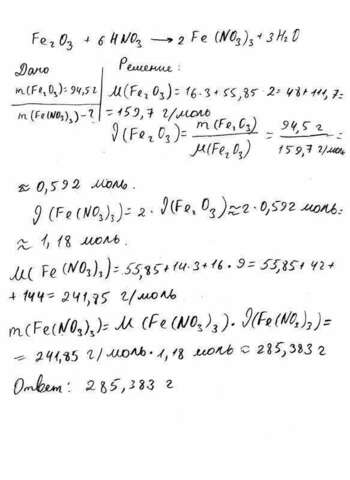 Fe₂O₃ + 6HNO₃ → 2Fe(NO₃)₃ + 3H₂O
Дано
Решение:
m(Fe₂O₃)=94,5г
M(Fe₂O₃)=16·3+55,85·2=48+111,7=
m(Fe(NO₃)₃)-?
=159,7 г/моль
ν(Fe₂O₃)= m(Fe₂O₃)/M(Fe₂O₃) = 94,5 г/159,7 г/моль =
≈ 0,592 моль.
ν(Fe(NO₃)₃)=2·ν(Fe₂O₃)≈2·0,592 моль=
≈ 1,18 моль.
M(Fe(NO₃)₃)=55,85+14·3+16·9=55,85+42+
+144=241,85 г/моль
m(Fe(NO₃)₃)=M(Fe(NO₃)₃)·ν(Fe(NO₃)₃)=
= 241,85 г/моль·1,18 моль ≈ 285,383 г
Ответ: 285,383 г